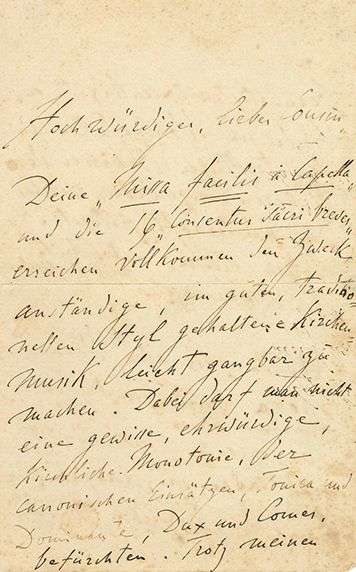 Hochwürdiger, lieber Cousin
Deine „Missa facilis à Capella"
und die 16 „Consentus Sacri breves"
erreichen vollkommen den Zweck
anständige, im guten, traditio=
nellen Styl gehaltene Kirchen=
musik, leicht gangbar zu
machen. Dabei darf man nicht
eine gewisse, ehrwürdige,
kirchliche Monotonie, der
cannonischen Einsätzen, Tonica und
Dominante, Dux und Comes,
befürchten. Trotz meinen